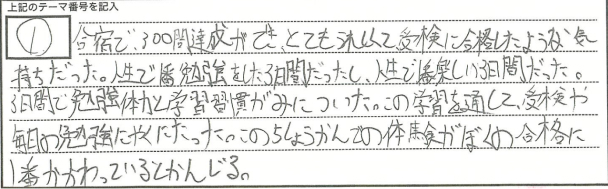 上記のテーマ番号を記入
①
合宿で、300問達成ができ、とてもうれしくて受検に合格したような気
持ちだった。人生で1番勉強をした3日間だったし、人生で1番楽しい3日間だった。
3日間で勉強体力と学習習慣がみについた。この学習を通して、受検や
毎日の勉強にやくにたった。このちょうかんでの体験がぼくの合格に
1番かかわっているとかんじる。